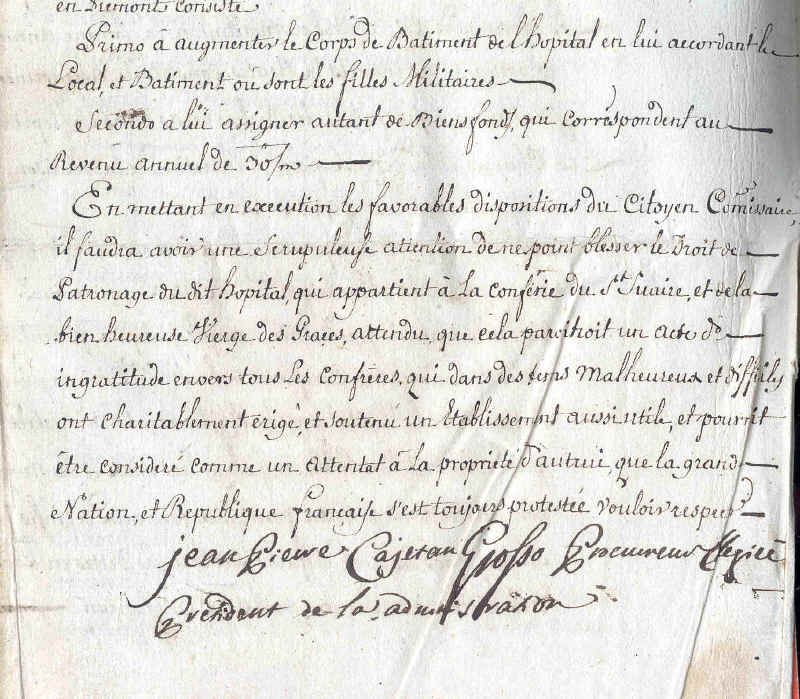 en Piemont consiste
Primo à augmenter le Corps de Batiment de l'hopital en lui accordant le
Local, et Batiment où sont les filles Militaires
Secondo a lui assigner autant de Biens fonds, qui correspondent au
Revenu annuel de 30/m
En mettant en execution les favorables dispositions du Citoyen Comissaire,
il faudra avoir une Scrupuleuse attention de ne point blesser le Droit de
Patronage du dit hopital, qui appartient à la Confrérie du St Suaire, et de la
bien heureuse Vierge des Graces, attendu, que cela paroitroit un acte d'
ingratitude envers tous les Confrères, qui dans des tems malheureux et diffi
ont charitablement erigé, et soutenu un Etablissement aussi utile, et pourroit
être consideré comme un attentat à la proprieté d'autrui, que la grande
Nation, et Republique française s'est toujours protestée vouloir respect
jean Pierre Cajetan Grosso Procureur
President de la administration